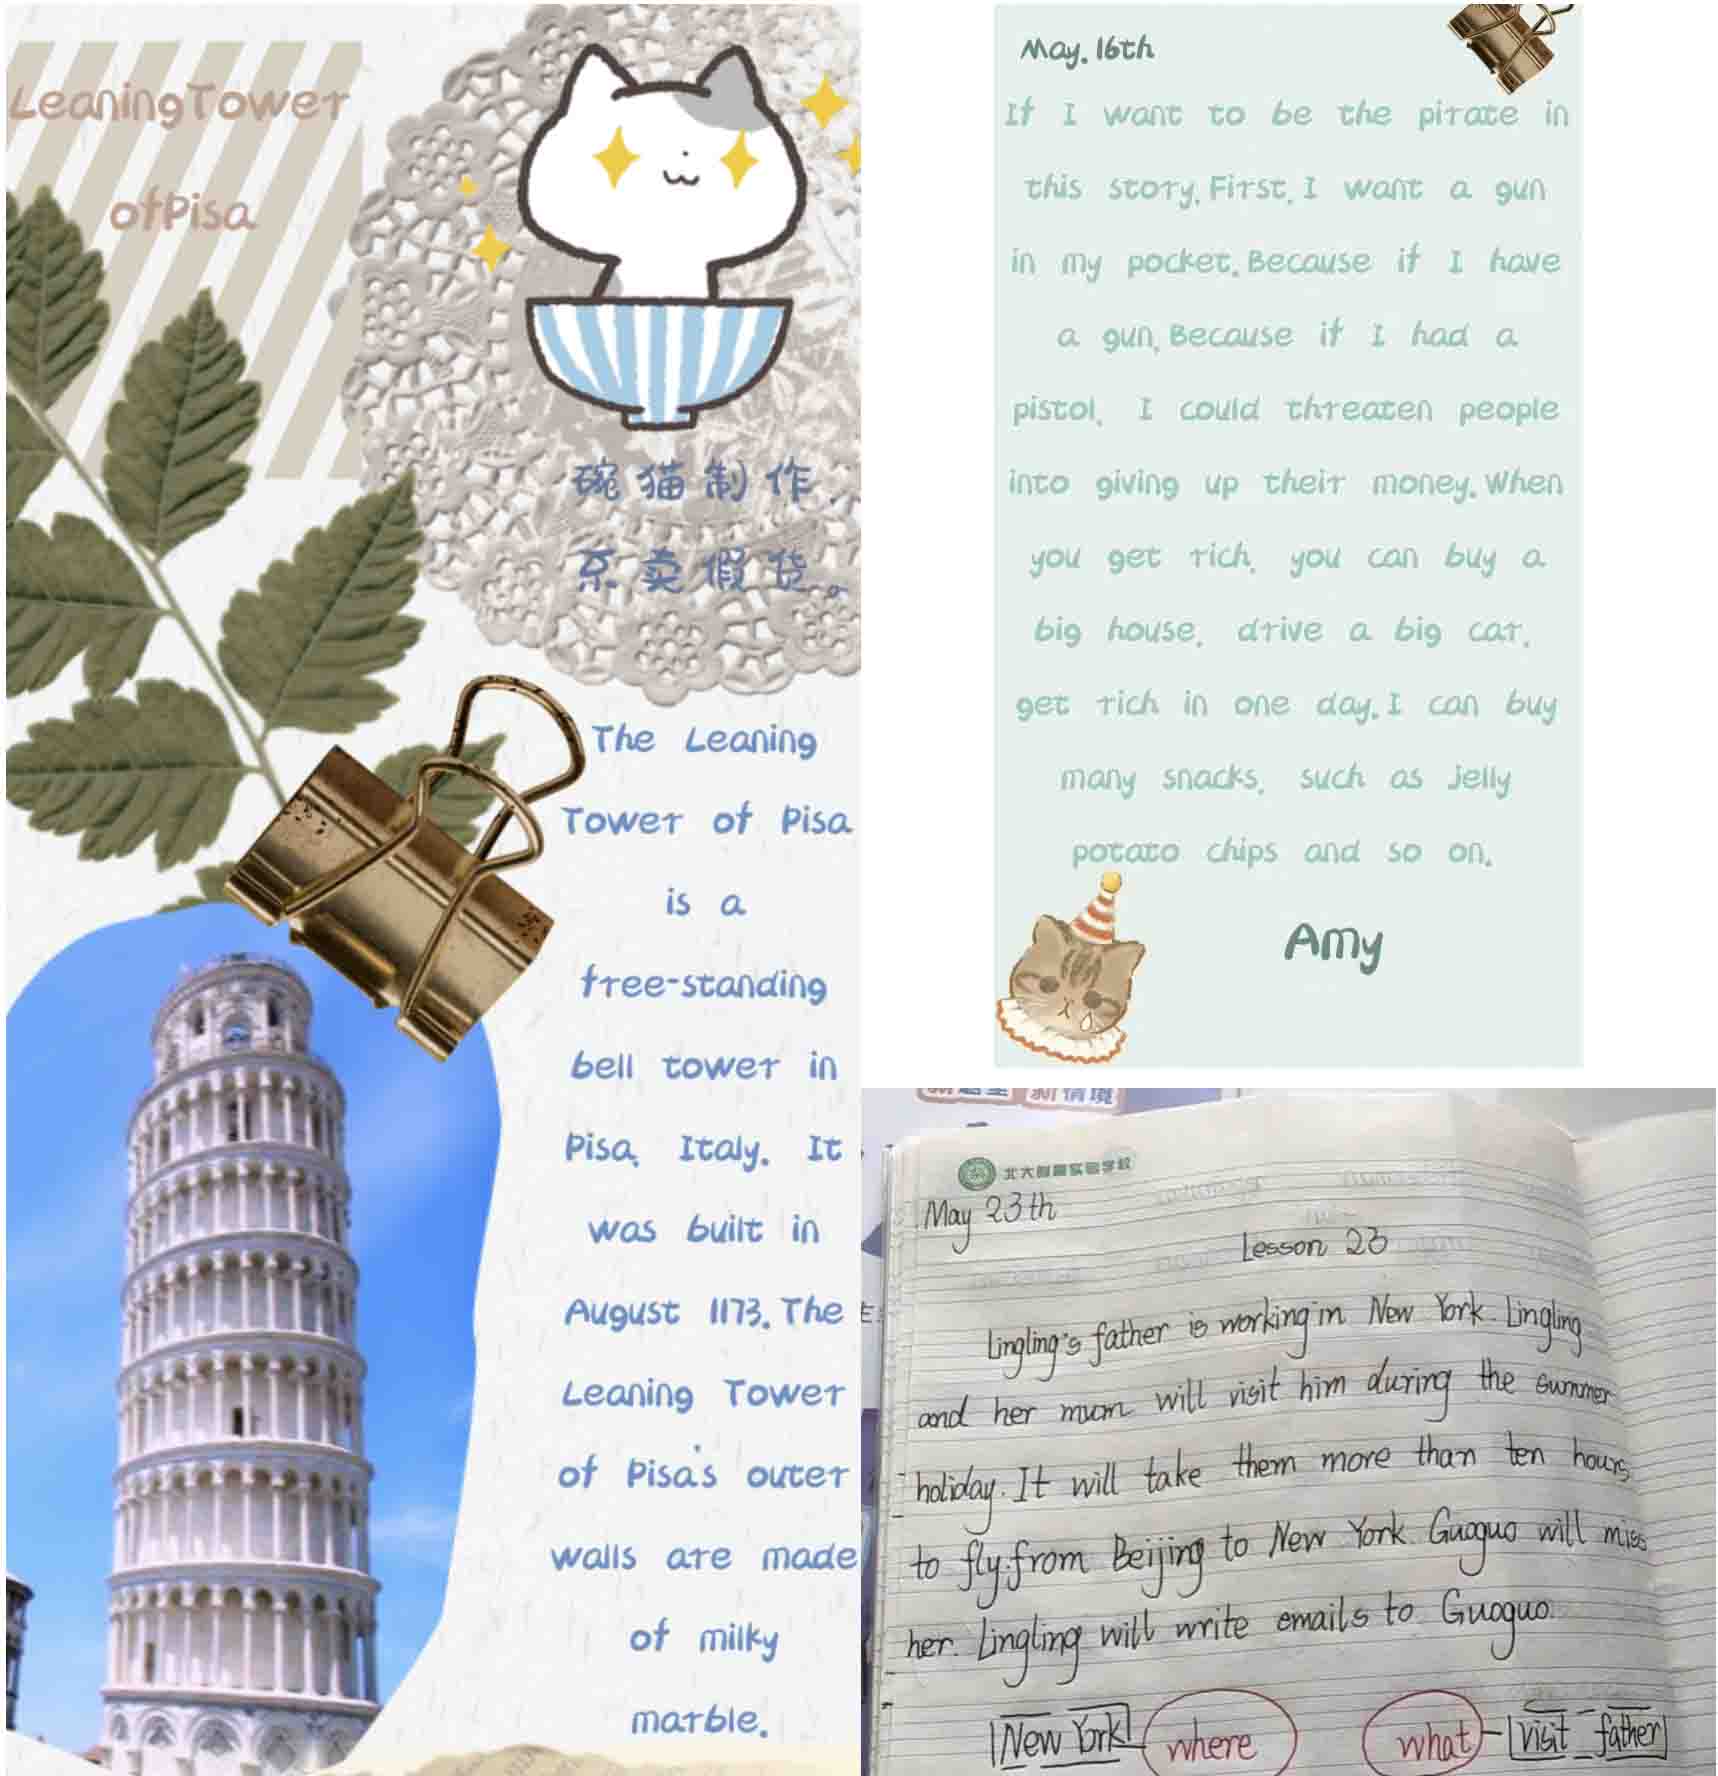 LeaningTower
ofPisa
碗猫制作.
系卖假货。
The Leaning
Tower of Pisa
is a
free-standing
bell tower in
Pisa, Italy. It
was built in
August 1173. The
Leaning Tower
of Pisa's outer
walls are made
of milky
marble.
May. 16th
If I want to be the pirate in
this story. First, I want a gun
in my pocket. Because if I have
a gun, Because if I had a
pistol, I could threaten people
into giving up their money. When
you get rich, you can buy a
big house, drive a big car,
get rich in one day. I can buy
many snacks, such as jelly
potato chips and so on.
Amy
新情境
北大附属实验学校
May 23th
Lesson 23
Lingling's father is working in New York. Lingling
and her mum will visit him during the summer
holiday. It will take them more than ten hours
to fly from Beijing to New York. Guoguo will miss
her. Lingling will write emails to Guoguo.
New York where what visit father